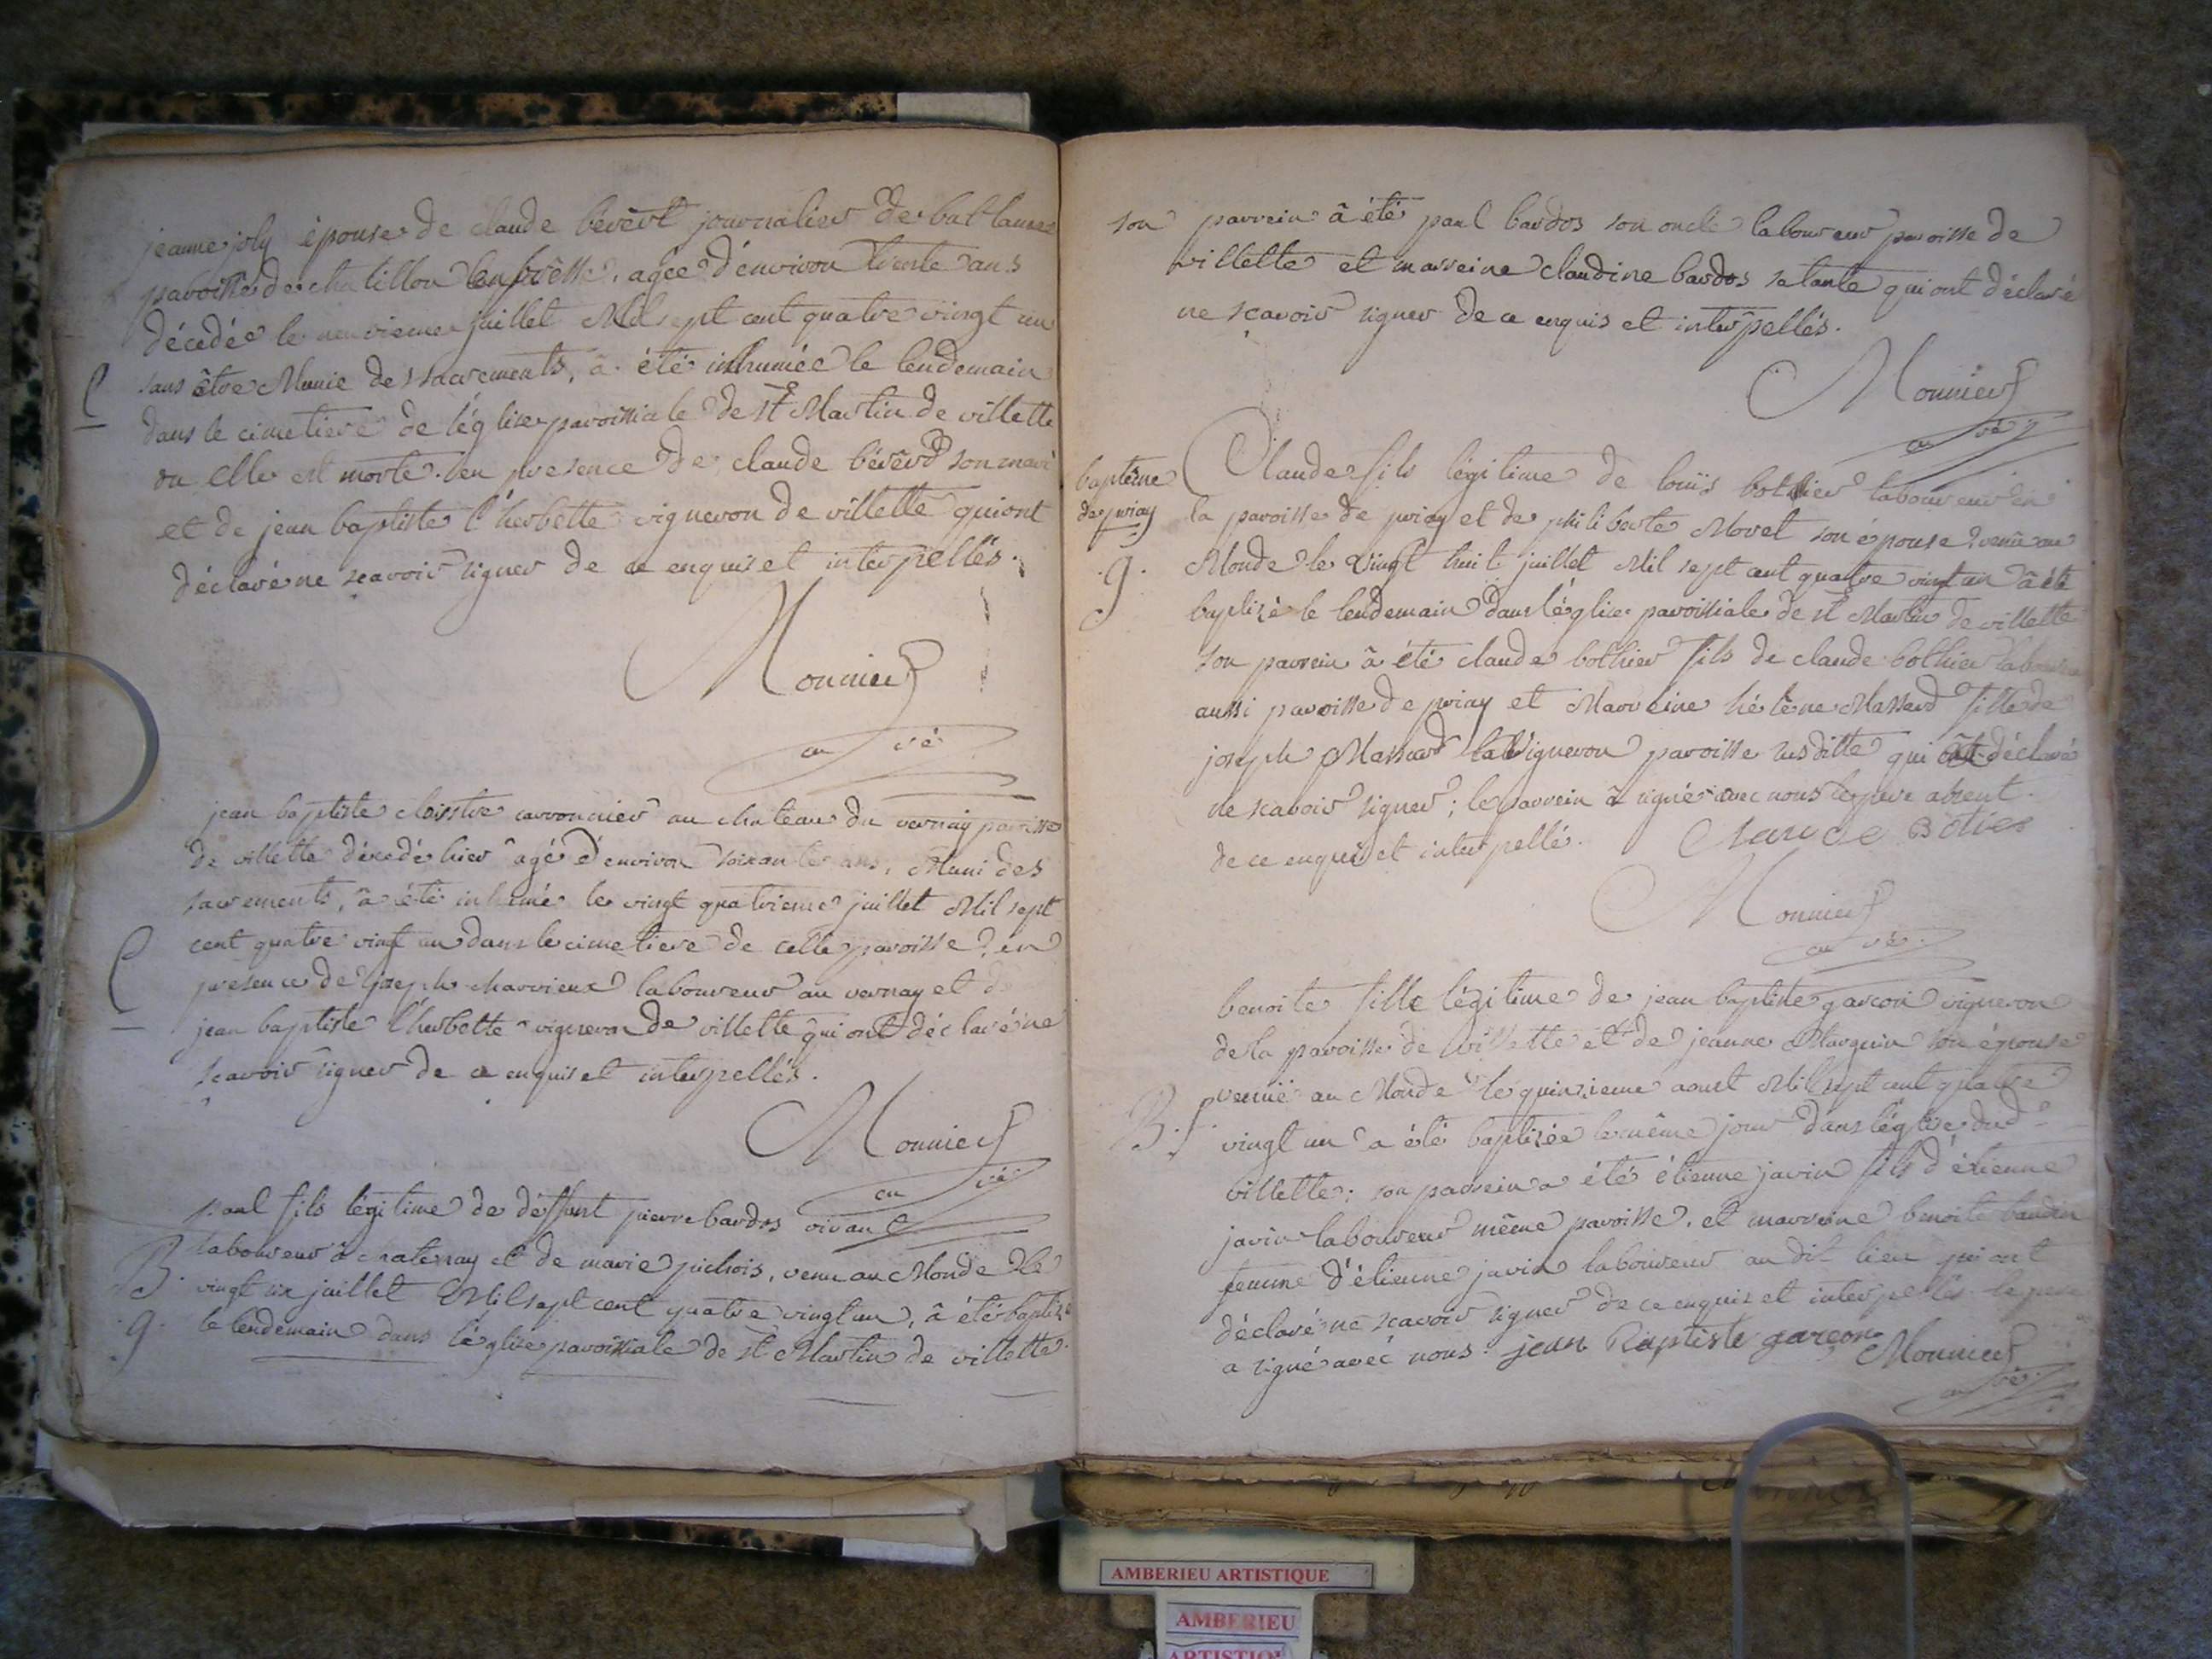 jeanne joly épouse de claude bévérd journalier de
paroisse de chatillon agée d'environ trente ans
décédée le neuvieme juillet Mil sept cent quatre vingt un
sans être Munie des sacrements, â été inhumée le lendemain
dans le cimetiere de léglise paroissiale de st Martin de villette
ou elle est morte. en presence de claude bévérd son mari
et de jean baptiste l'herbette vigneron de villette qui ont
déclaré ne scavoir signer de ce enquis et interpellés.
Monnier
curé
jean baptiste au chateau du vernay paroisse
de villette décédé hier agé d'environ soixante ans, Muni des
sacrements, â été inhumé le vingt quatrieme juillet Mil sept
cent quatre vingt un dans le cimetiere de cette paroisse, en
presence de joseph charvieux laboureur au vernay et de
jean baptiste l'herbette vigneron de villette qui ont déclaré ne
scavoir signer de ce enquis et interpellés.
Monnier
curé
paul fils légitime de déffunt pierre bardos vivant
B. laboureur à chatenay et de marie pichois, venu au Monde le
vingt six juillet Mil sept cent quatre vingt un, â été baptisé
.g. le lendemain dans léglise paroissiale de st Martin de villette.
son parrein â été paul bardos son oncle laboureur paroisse de
villette et marreine claudine bardos sa tante qui ont déclaré
ne scavoir signer de ce enquis et interpellés.
Monnier
curé
baptême
de priay
.g.
Claude fils légitime de louis bothier laboureur en
la paroisse de priay et de philiberte Movet son épouse venu au
Monde le vingt huit juillet Mil sept cent quatre vingt un â été
baptisé le lendemain dans l'église paroissiale de st Martin de villette
son parrein â été claude bothier fils de claude bothier laboureur
aussi paroisse de priay et Marreine héléne Massard fille de
joseph Massard vigneron paroisse susditte qui déclaré
ne scavoir signer; le parrein â signé avec nous le pere absent.
de ce enquis et interpellé. Claude Botier
Monnier
curé.
benoite fille légitime de jean baptiste garcon vigneron
de la paroisse de villette et de jeanne Marguin son épouse
venuë au Monde le quinzieme aoust Mil sept cent quatre
B. f. vingt un a été baptisée le même jour dans léglise dud
villette; son parrein a été étienne javin fils d'étienne
javin laboureur même paroisse, et marreine benoite baudin
femme d'étienne javin laboureur au dit lieu qui ont
déclaré ne scavoir signer de ce enquis et interpellés le pere
a signé avec nous. jean Baptiste garcon
Monnier
curé.
AMBERIEU ARTISTIQUE
AMBERIEU
ARTISTIQUE